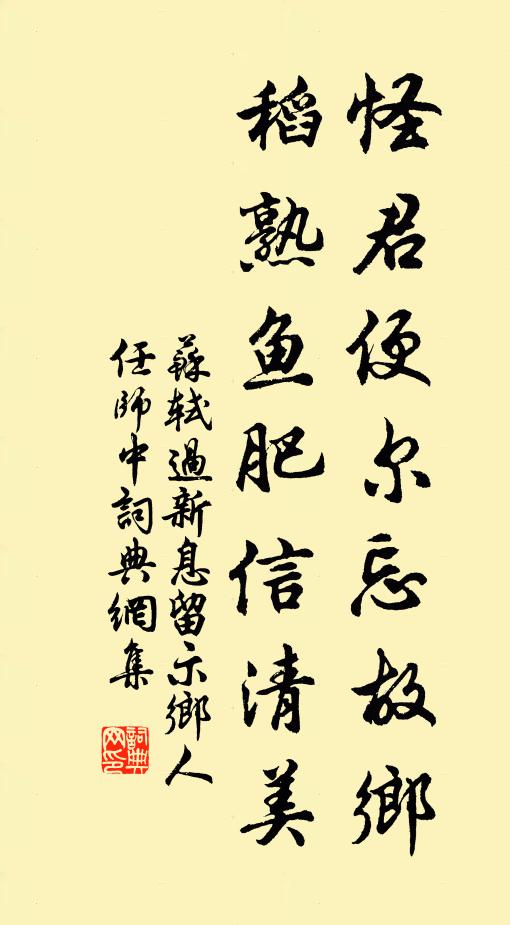 怪君便尔忘故鄉
稻熟鱼肥信清美
蘇軾過新息留示鄉人
任師中詞典網集
詞典網印